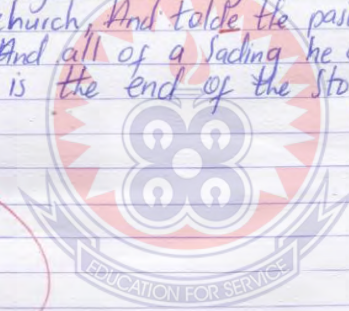 church, And tolde the pas
And all of a sading he
is the end of the Sto
EDUCATION FOR SERVICE